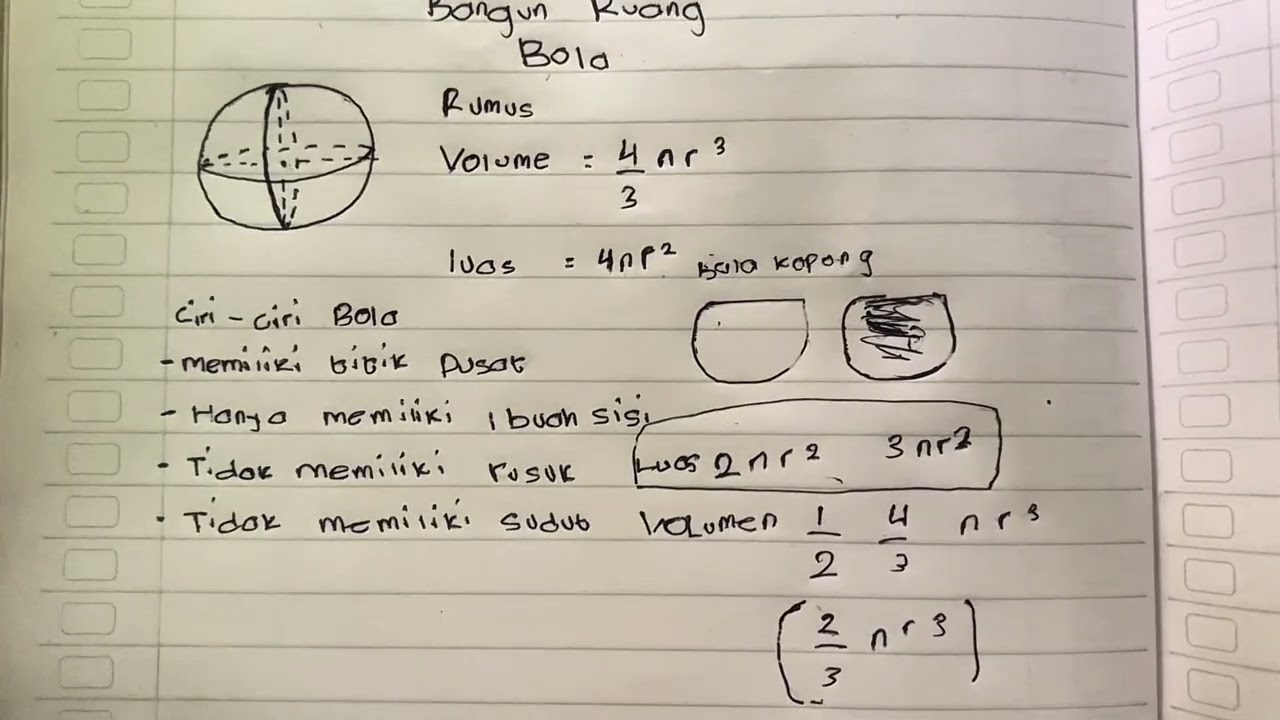 Bangun Ruang
Bola
Rumus
Volume = 4/3 πr³
luas = 4πr² Bola kopong
Ciri-ciri Bola
- memiliki titik pusat
- Hanya memiliki 1 buah sisi
- Tidak memiliki rusuk
Luas 2πr² 3πr²
- Tidak memiliki sudut
Volumen 1/2 4/3 πr³
(2/3 πr³)